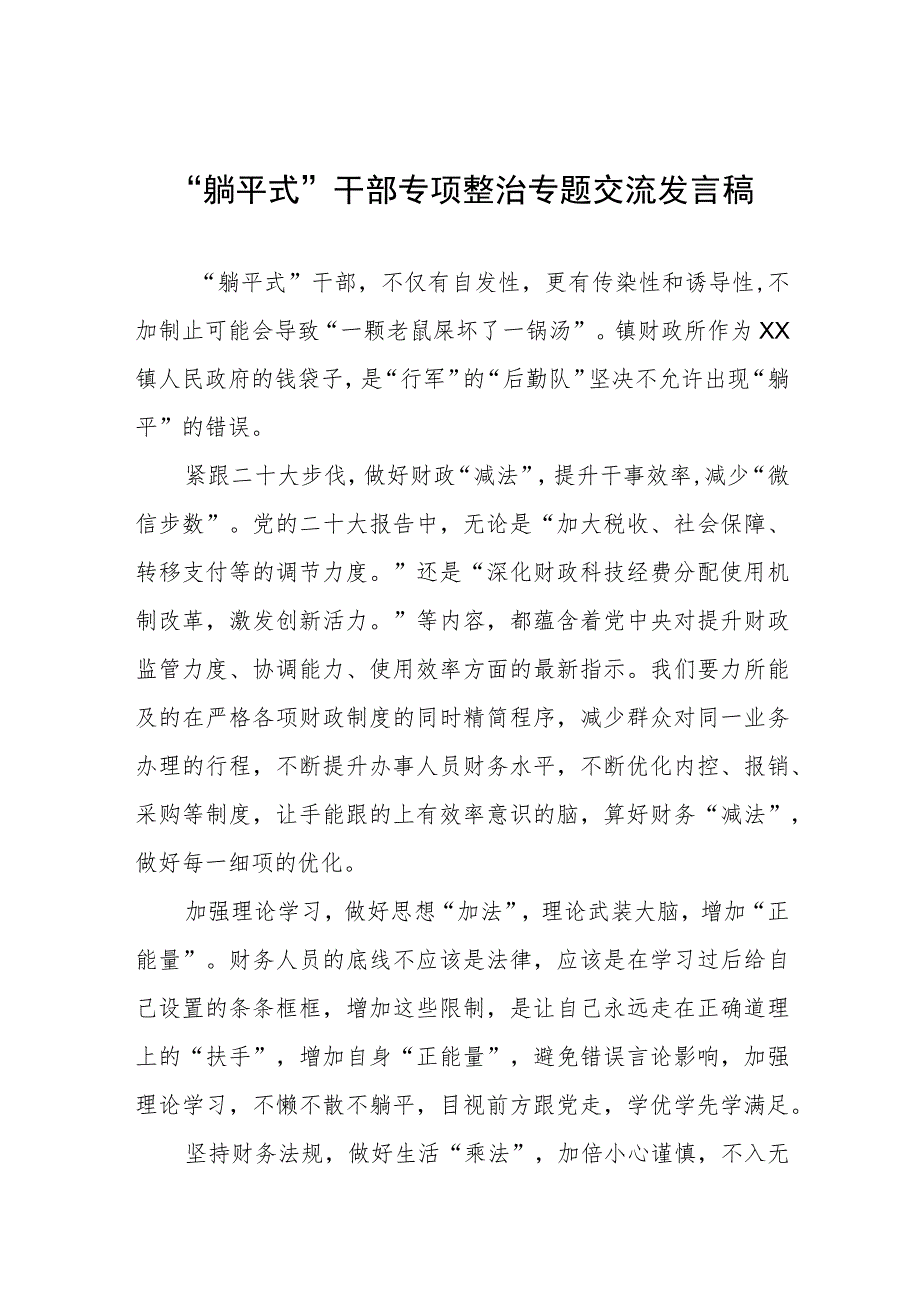 “躺平式”干部专项整治专题交流发言稿
“躺平式”干部，不仅有自发性，更有传染性和诱导性,不
加制止可能会导致“一颗老鼠屎坏了一锅汤”。镇财政所作为 XX
镇人民政府的钱袋子,是“行军”的“后勤队”坚决不允许出现“躺
平”的错误。
紧跟二十大步伐，做好财政“减法”，提升干事效率,减少“微
信步数”。党的二十大报告中，无论是“加大税收、社会保障、
转移支付等的调节力度。”还是“深化财政科技经费分配使用机
制改革，激发创新活力。”等内容，都蕴含着党中央对提升财政
监管力度、协调能力、使用效率方面的最新指示。我们要力所能
及的在严格各项财政制度的同时精简程序，减少群众对同一业务
办理的行程，不断提升办事人员财务水平，不断优化内控、报销、
采购等制度，让手能跟的上有效率意识的脑，算好财务“减法”，
做好每一细项的优化。
加强理论学习，做好思想“加法”，理论武装大脑，增加“正
能量”。财务人员的底线不应该是法律，应该是在学习过后给自
己设置的条条框框，增加这些限制，是让自己永远走在正确道理
上的“扶手”，增加自身“正能量”，避免错误言论影响，加强
理论学习，不懒不散不躺平，目视前方跟党走，学优学先学满足。
坚持财务法规，做好生活“乘法”，加倍小心谨慎，不入无